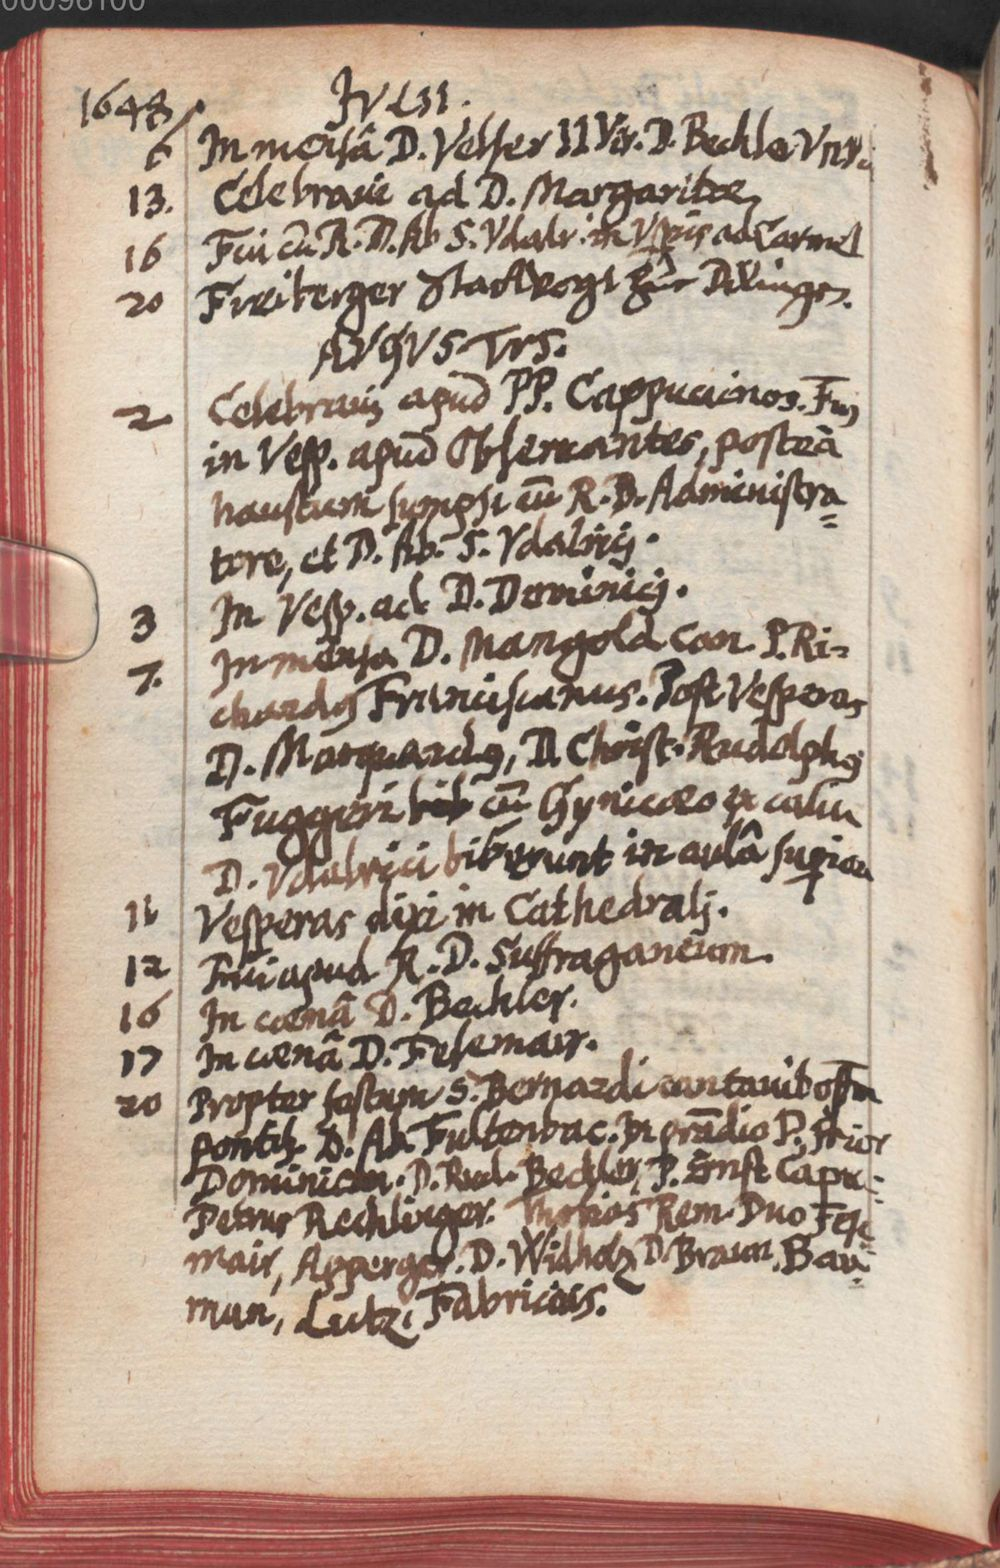 00096100
1648. JVLII.
6 In mensâ D. Velser II Vir. D. Bechler Vnr.
13. Celebraui ad D. Margaritae
16 Fui cū R. D. Ab S. Vdalr. in Vesp̄is ad Carmel
20 Freiberger Stattvogt zu Dilingen.
AVGVSTVS.
2 Celebrauj apud PP. Cappucinos. Fuj
in Vesp. apud Obseruantes, posteà
haustum sumpsi cū R. D. Administra=
tore, et D. Ab. S. Vdalricj.
3 In Vesp. ad D. Dominicj.
7. In mensa D. Mangold Can. P. Ri=
chardus Franciscanus. Post Vesperas
D. Marquardus, D. Christ. Rudolphus
Fuggeri cū Gynicaeo ex
D. Vdalrici biberunt in aulâ
11 Vesperas dixi in Cathedralj.
12 Fui apud R. D. Suffraganeum.
16 In coenâ D. Bechler.
17 In coenâ D. Feslmair.
20 Propter festum S. Bernardi cantauit off̄m
pontif. D. Ab. Fultenbac. In prādio P. Prior
Dominican. D. Bechler, P. Ernst Capu=
Petrus Rechlinger. Thobias Rem. Duo Fesl
mair, Apperger. D. Widholz D. Braun. Bau=
man, Lutz. Fabricius.